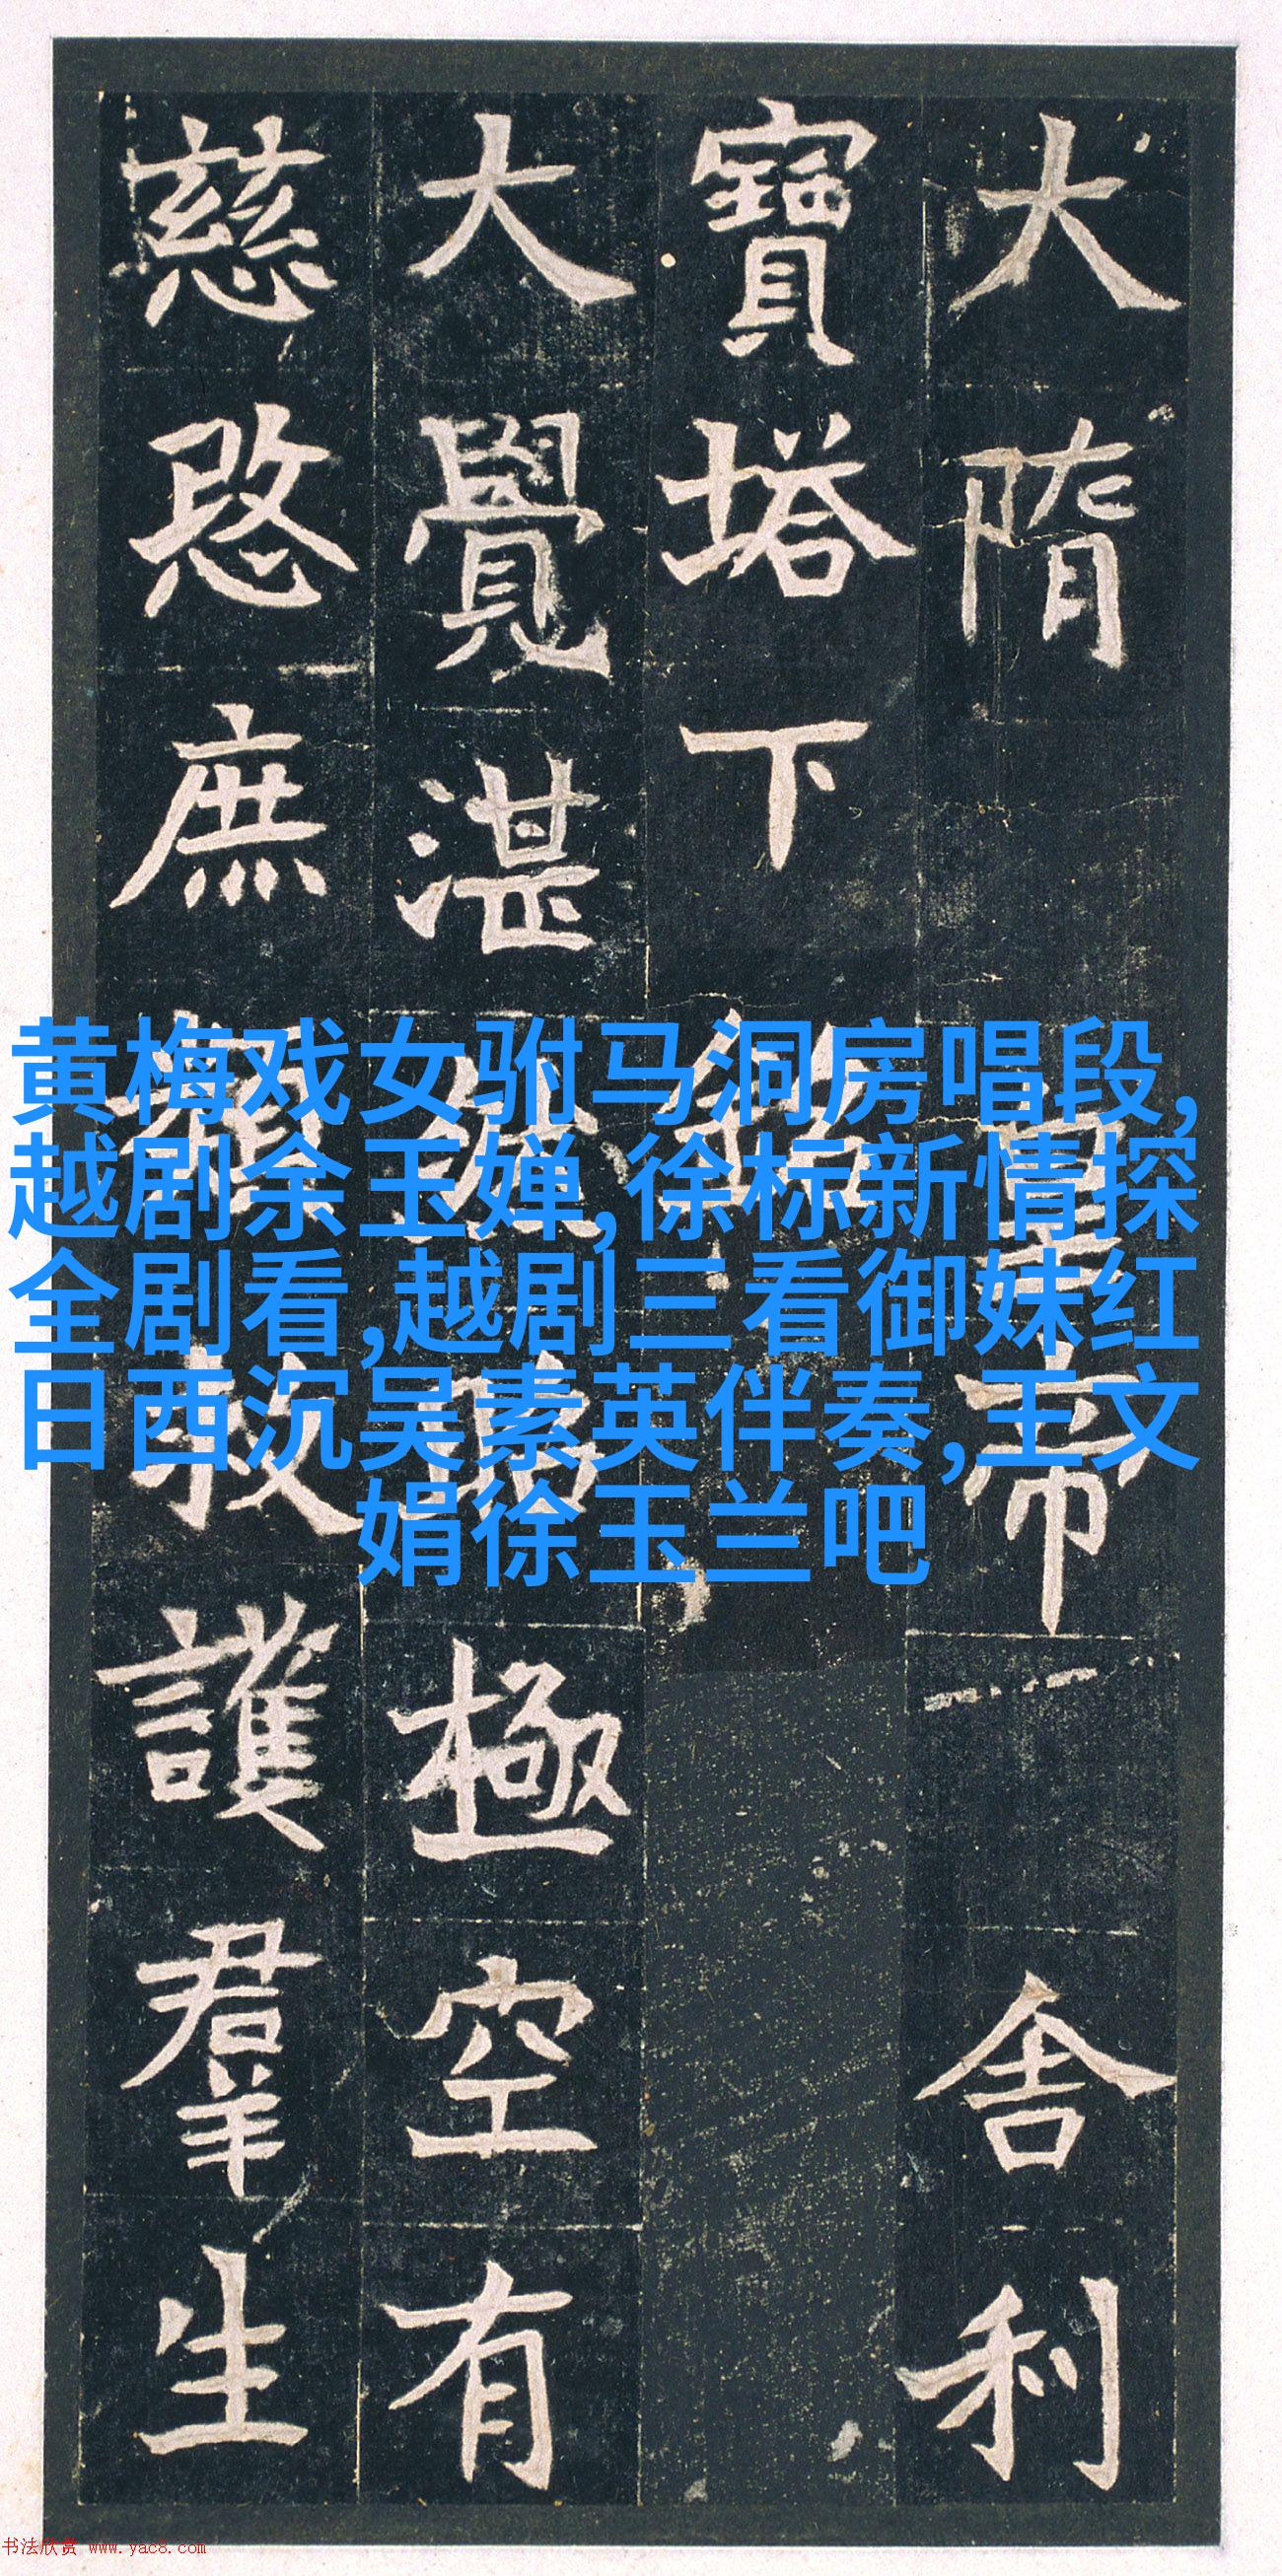 大隋皇帝舍利
寶塔下銘
大覺湛極空有
慈愍庶救護羣生
黄梅戏女驸马洞房唱段,
越剧余玉婵,徐标新情探
全剧看,越剧三看御妹红
日西沉吴素英伴奏,王文
娟徐玉兰吧
书法欣赏 www.yac8.com